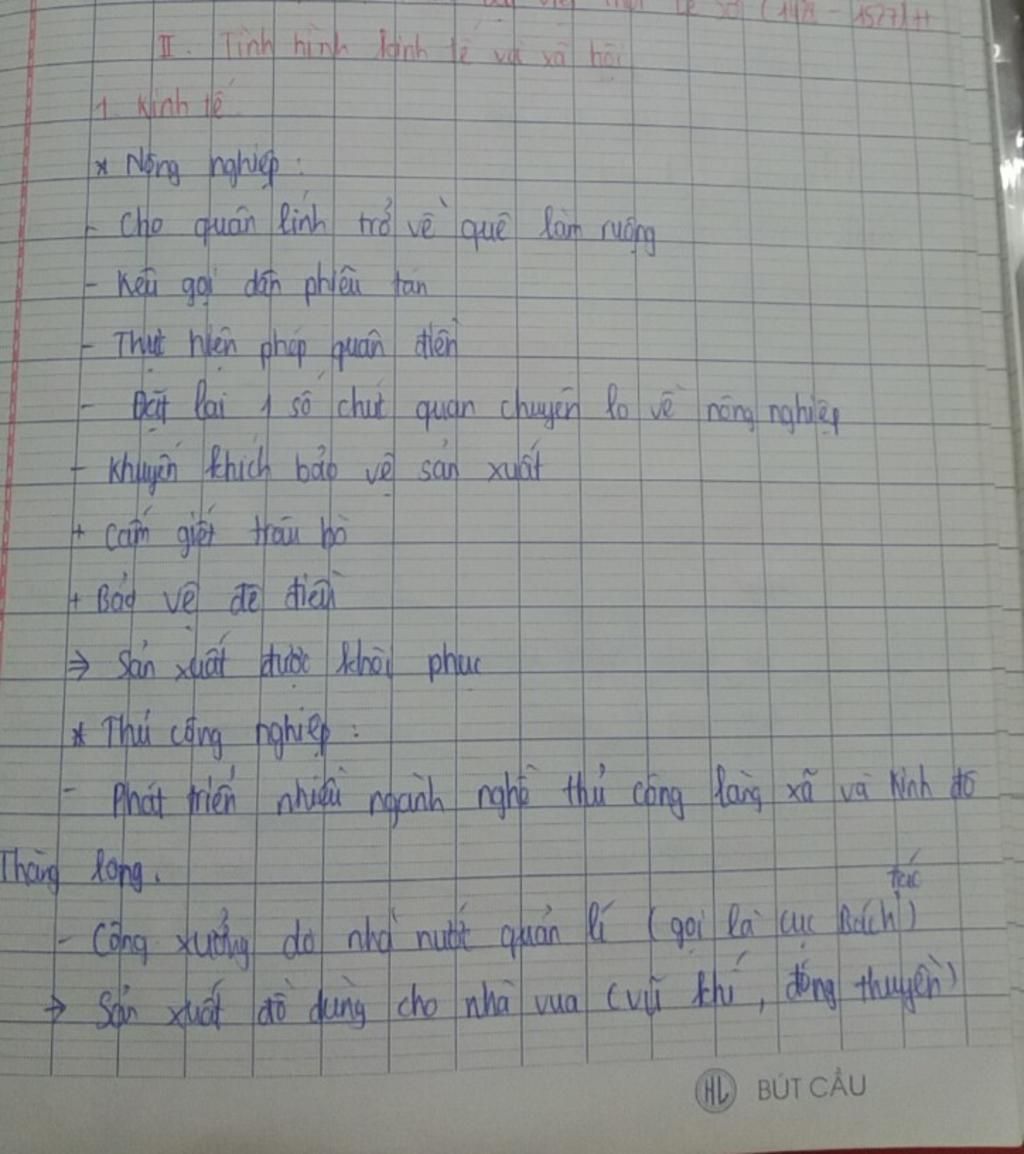 (1428 - 1527)
II. Tình hình kinh tế và xã hội
1. Kinh tế
* Nông nghiệp:
- Cho quân lính trở về quê làm ruộng
- Kêu gọi dân phiêu tán
- Thực hiện phép quân điền
- Đặt lại 1 số chức quan chuyên lo về nông nghiệp
- Khuyến khích bảo vệ sản xuất
+ Cấm giết trâu bò
+ Bảo vệ đê điều
⇒ Sản xuất được khôi phục
* Thủ công nghiệp:
- Phát triển nhiều ngành nghề thủ công làng xã và Kinh đô
Thăng long.
tác
- Công xưởng do nhà nước quản lí (gọi là cục Bách)
→ Sản xuất đồ dùng cho nhà vua (vũ khí, đóng thuyền)
HL BÚT CẦU